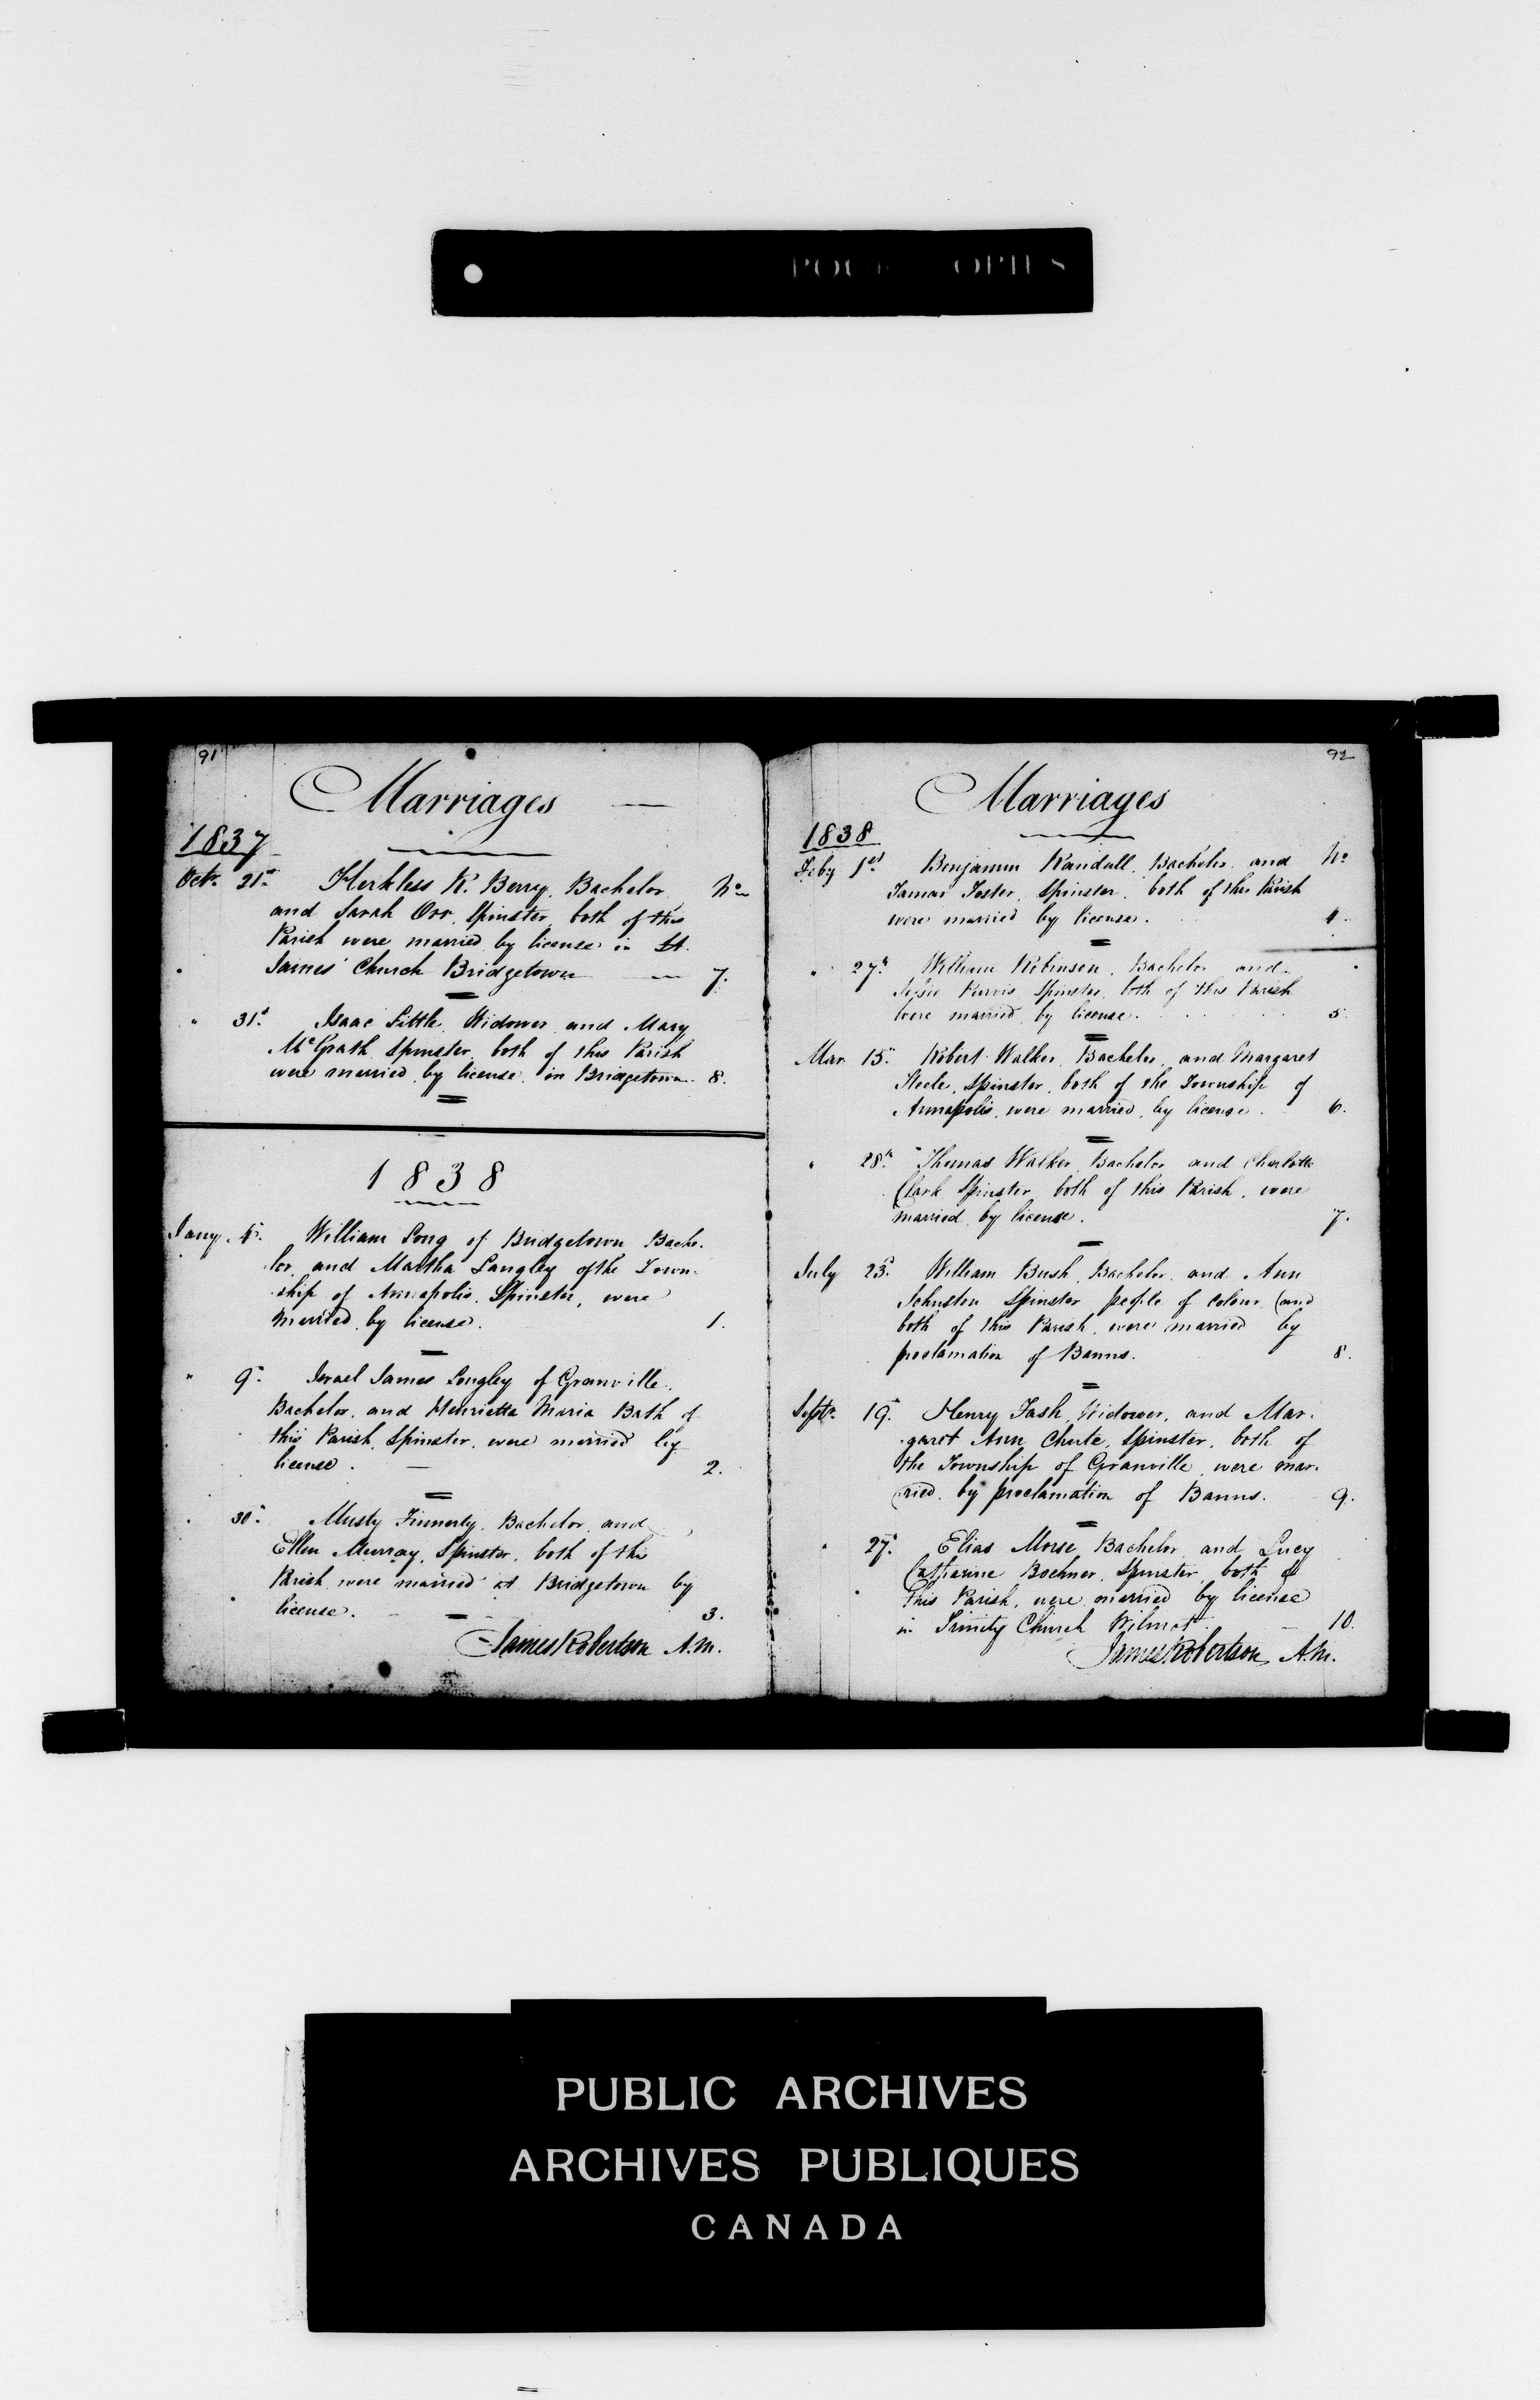 91
Marriages
1837
Octr. 21st. Herkless K. Berry, Bachelor No
and Sarah Orr, Spinster, both of this
Parish were married by license in St.
James' Church Bridgetown 7.
" 31st. Isaac Little, Widower and Mary
McGrath Spinster, both of this Parish
were married by license, in Bridgetown. 8.
1838
Jany. William Long of Bridgetown Bache-
lor, and Martha Langley of the Town-
ship of Annapolis, Spinster, were
married by license. 1.
" 9th. Israel James Longley of Granville,
Bachelor, and Henrietta Maria Bath of
this Parish, Spinster, were married by
license. 2.
" 30th. Finnerty, Bachelor, and
Ellen Murray, Spinster, both of this
Parish were married at Bridgetown by
license. 3.
James Robertson A.M.
92
Marriages
1838
Feby 1st Benjamin Randall, Bachelor and No
Tamar Foster, Spinster, both of this Parish
were married by license. 4.
" 27th William Robinson, Bachelor and
Purvis Spinster, both of this Parish
were married by license. 5.
Mar 15th. Robert Walker, Bachelor, and Margaret
Steele, Spinster, both of the Township of
Annapolis, were married, by license. 6.
" 28th. Thomas Walker, Bachelor and Charlotte
Clark Spinster both of this Parish, were
married by license. 7.
July 23d. William Bush, Bachelor, and Ann
Johnston Spinster people of colour, (and
both of this Parish, were married by
proclamation of Banns. 8.
Septr. 19th. Henry Tash, Widower, and Mar-
garet Ann Chute, Spinster, both of
the Township of Granville, were mar-
ried, by proclamation of Banns. 9.
" 27th. Elias Morse, Bachelor, and Lucy
Catharine Boehner, Spinster, both of
this Parish, were married by license
in Trinity Church Wilmot 10.
James Robertson, A.M.
PUBLIC ARCHIVES
ARCHIVES PUBLIQUES
CANADA